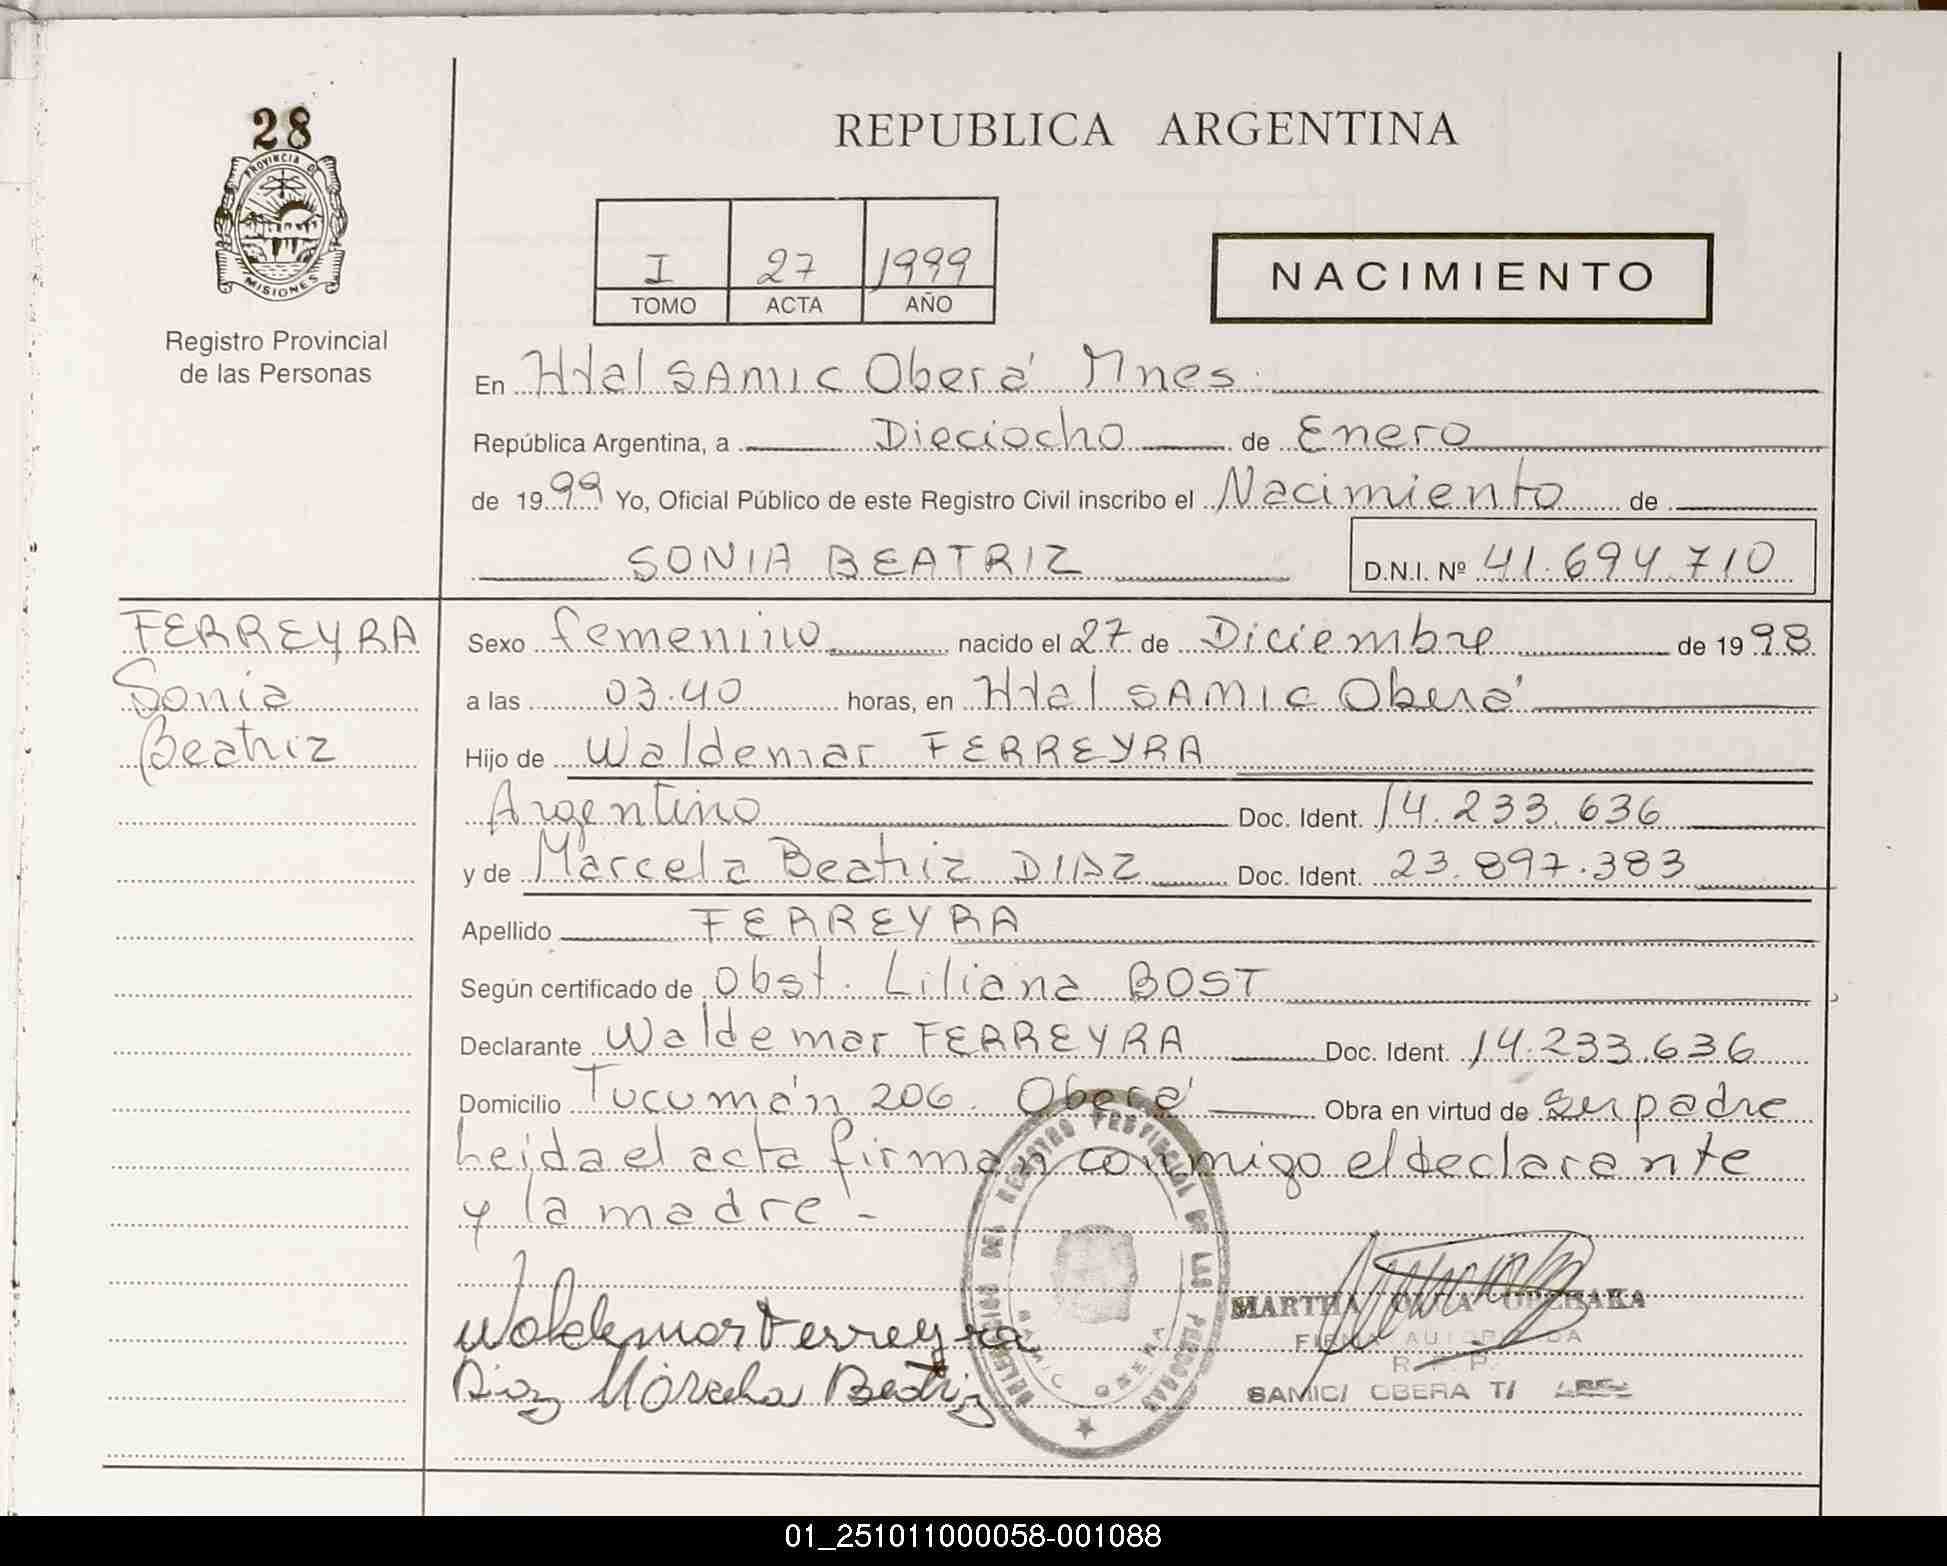 28
PROVINCIA D
MISIONES
Registro Provincial
de las Personas
REPUBLICA ARGENTINA
I 27 1999
TOMO ACTA AÑO
NACIMIENTO
En Htal SAMIC Oberá Mnes.
República Argentina, a Dieciocho de Enero
de 1999 Yo, Oficial Público de este Registro Civil inscribo el Nacimiento de
SONIA BEATRIZ D.N.I. Nº 41.694.710
FERREYRA
Sonia
Beatriz
Sexo femenino nacido el 27 de Diciembre de 1998
a las 03.40 horas, en Htal SAMIC Oberá
Hijo de Waldemar FERREYRA
Argentino Doc. Ident. 14.233.636
y de Marcela Beatriz DIAZ Doc. Ident. 23.897.383
Apellido FERREYRA
Según certificado de Obst. Liliana BOST
Declarante Waldemar FERREYRA Doc. Ident. 14.233.636
Domicilio Tucumán 206. Oberá Obra en virtud de ser padre
Leida el acta firman conmigo el declarante
y la madre -
Waldemar Ferreyra
Diaz Marcela Beatriz
DEL REGISTRO PROVINCIAL DE LAS PERSONAS
SAMIC OBERA
MARTHA
FIRMA AUTORIZADA
R. P. P.
SAMIC/ OBERA T/
01_251011000058-001088